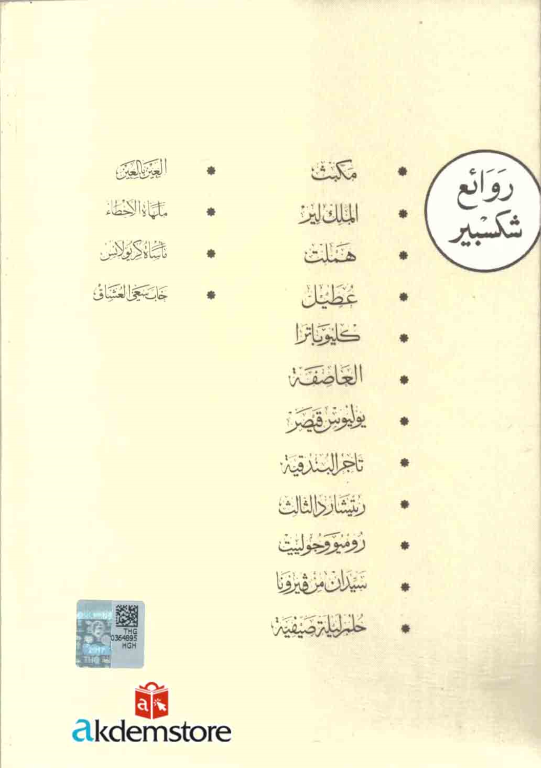 روائع
شكسبير
مكبث
الملك لير
هملت
عطيل
كليوباترا
العاصفة
يوليوس قيصر
تاجر البندقية
ريتشارد الثالث
روميو وجولييت
سيدان من ڤيرونا
حلم ليلة صيفية
العين بالعين
ملهاة الأخطاء
مأساة كريولانس
خاب سعي العشاق
THG
0364895
HGH
2017
THG
akdemstore